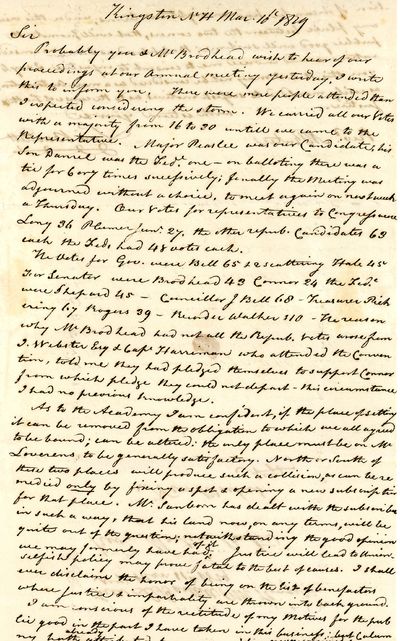 Kingston N.H Mar. 10th 1819
Sir
Probably you & Mr Brodhead wish to hear of our
proceedings at our Annual meeting yesterday, I write
this to inform you. There were more people attended than
I expected considering the storm. We carried all our Votes
with a majority from 16 to 20 untill we came to the
Representative. Major Peaslee was our Candidate, his
Son Daniel was the Fedl. one — on balloting there was a
tie for 6 or 7 times successively; finally the Meeting was
adjourned without a choice, to meet again on next week
a Thursday. Our Votes for representatives to Congress were
Long 36 Plumer Junr. 27, the other repub. Candidates 63
each the Feds, had 48 votes each.
The Votes for Gov. were Bell 65 & 2 scattering Hale 45
For Senator were Brodhead 43 Connor 24 the Fedl.
were Shepard 45 — Councillor J Bell 68 — Treasurer Pick
ering 67 Rogers 39 — Recorder Walker 110 — The reason
why Mr Brodhead had not all the Repub. Votes arose from
J. Webster Esq & Capt Harreman who attended the Conven
tion, told me they had pledged themselves to support Connor
from which pledge they could not depart — this circumstance
I had no previous knowledge.
As to the Academy I am confident, if the place of setting
it can be removed from the obligation to which we all agreed
to be bound; can be altered: the only place must be on Mr
Loverens, to be generally satisfactory. North or South of
these two places will produce such a collision, as can be re
medied only by fixing a spot & opening a new subscription
for that place. Mr. Sanborn has dealt with the subscribers
in such a way, that his land now, on any terms, will be
quite out of the question; notwithstanding the good opinion
we may formerly have had of it. Justice will lead to Union
selfish policy may prove fatal to the best of causes. I shall
ever disclaim the honor of being on the list of benefactors
where justice & impartiality are thrown into back ground.
I am conscious of the rectitude of my Motives for the pub
lic good in the part I have taken in this business; but Calum